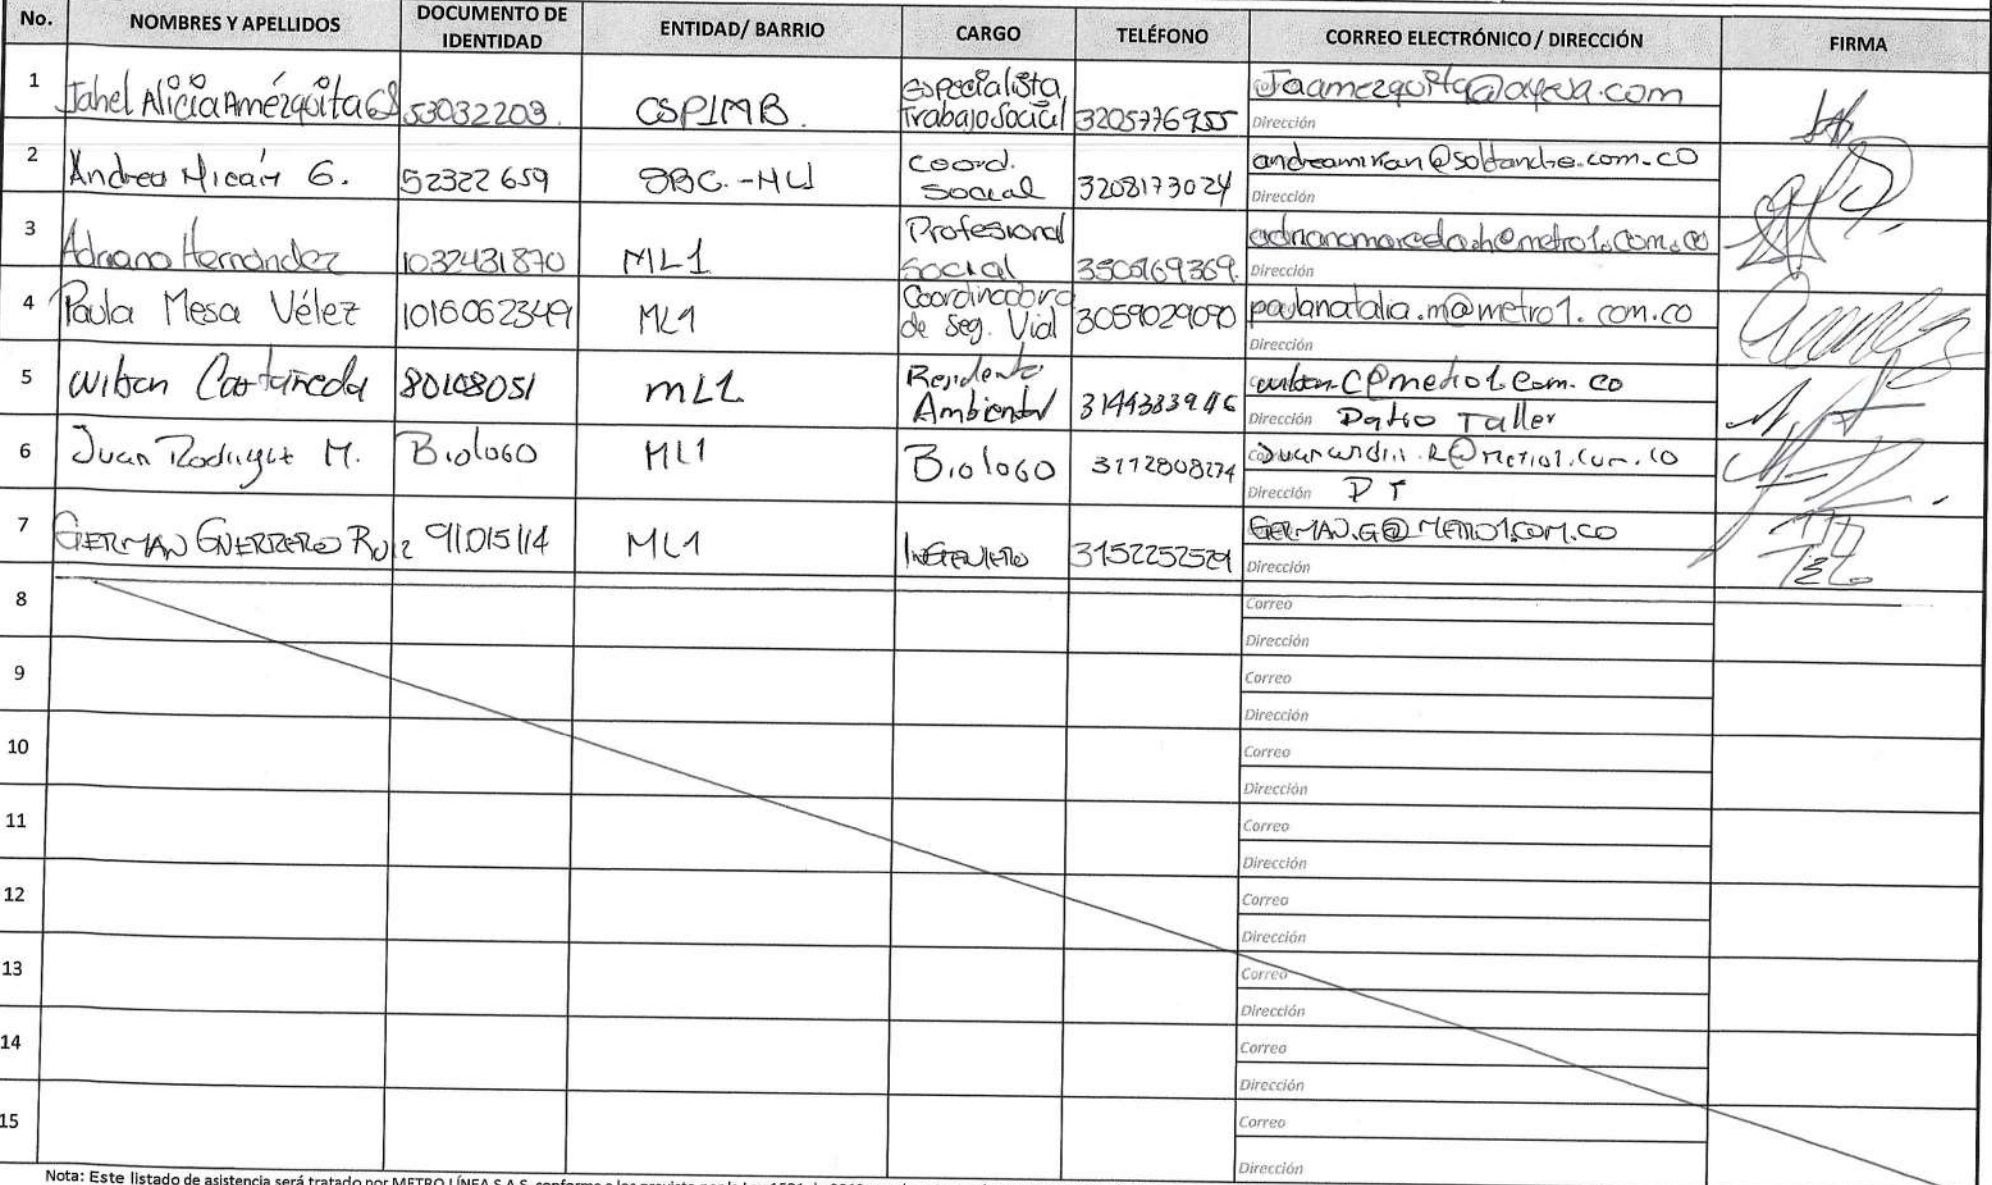 No. NOMBRES Y APELLIDOS DOCUMENTO DE IDENTIDAD ENTIDAD/ BARRIO CARGO TELÉFONO CORREO ELECTRÓNICO / DIRECCIÓN FIRMA
1 Jahel Alicia Amézquita 53032203. CSPIMB. Especialista Trabajo Social 3205776955 Jaamezquita@ayesa.com
Dirección
2 Andrea Micán G. 52322659 Coord. Social 3208173024
Dirección
3 Hernández 1032431870 ML1 Profesional Social 3505169369.
Dirección
4 Paula Mesa Vélez 1016062349 ML1 Coordinadora de Seg. Vial 3059029090 paulanatalia.m@metro1.com.co
Dirección
5 Wilson Castañeda 80108051 ML1 Residente Ambiental
Dirección Patio Taller
6 Juan M. Biologo ML1 Biologo 3112808274
Dirección PT
7 GERMAN GUERRERO RUIZ 91015114 ML1 INGENIERO GERMAN.G@METRO1.COM.CO
Dirección
8 Correo
Dirección
9 Correo
Dirección
10 Correo
Dirección
11 Correo
Dirección
12 Correo
Dirección
13 Correo
Dirección
14 Correo
Dirección
15 Correo
Dirección
Nota: Este listado de asistencia será tratado por METRO LÍNEA S.A.S. conforme a